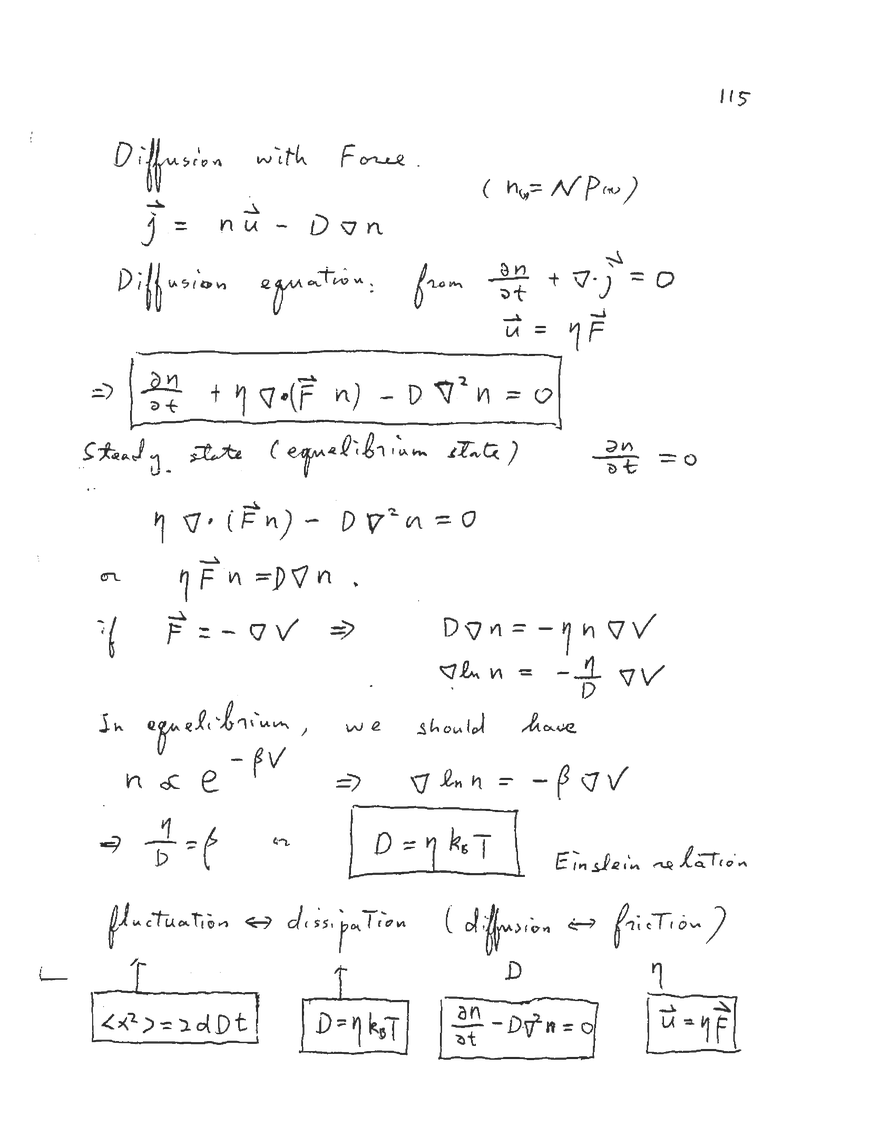 115
Diffusion with Force.
( n(x) = N P(x) )
j⃗ = n u⃗ - D ∇n
Diffusion equation: from ∂n/∂t + ∇·j⃗ = 0
u⃗ = η F⃗
⇒ ∂n/∂t + η ∇·(F⃗ n) - D ∇²n = 0
Steady state (equelibrium state) ∂n/∂t = 0
η ∇·(F⃗n) - D∇²n = 0
or η F⃗ n = D∇n .
if F⃗ = - ∇V ⇒ D∇n = - η n ∇V
∇ln n = - η/D ∇V
In equelibrium, we should have
n ∝ e^{-βV} ⇒ ∇ ln n = - β ∇V
⇒ η/D = β or D = η k_B T Einstein relation
fluctuation ↔ dissipation (diffusion ↔ friction)
↑ ↑ D η
<x²> = 2dDt D = η k_B T ∂n/∂t - D∇²n = 0 u⃗ = ηF⃗